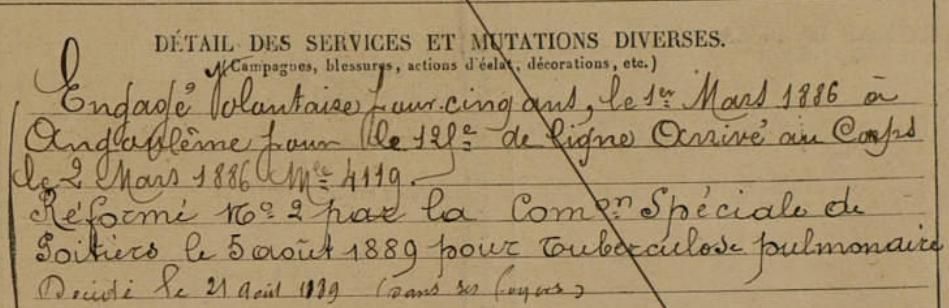 DÉTAIL DES SERVICES ET MUTATIONS DIVERSES.
(Campagnes, blessures, actions d'éclat, décorations, etc.)
Engagé Volontaire pour cinq ans, le 1er Mars 1886 à
Angoulême pour le de ligne Arrivé au Corps
le 2 Mars 1886 Mle 4119.
Réformé No 2 par la Comon Spéciale de
Poitiers le 5 août 1889 pour Tuberculose pulmonaire
Décédé le 21 août 1889 (dans ses foyers)